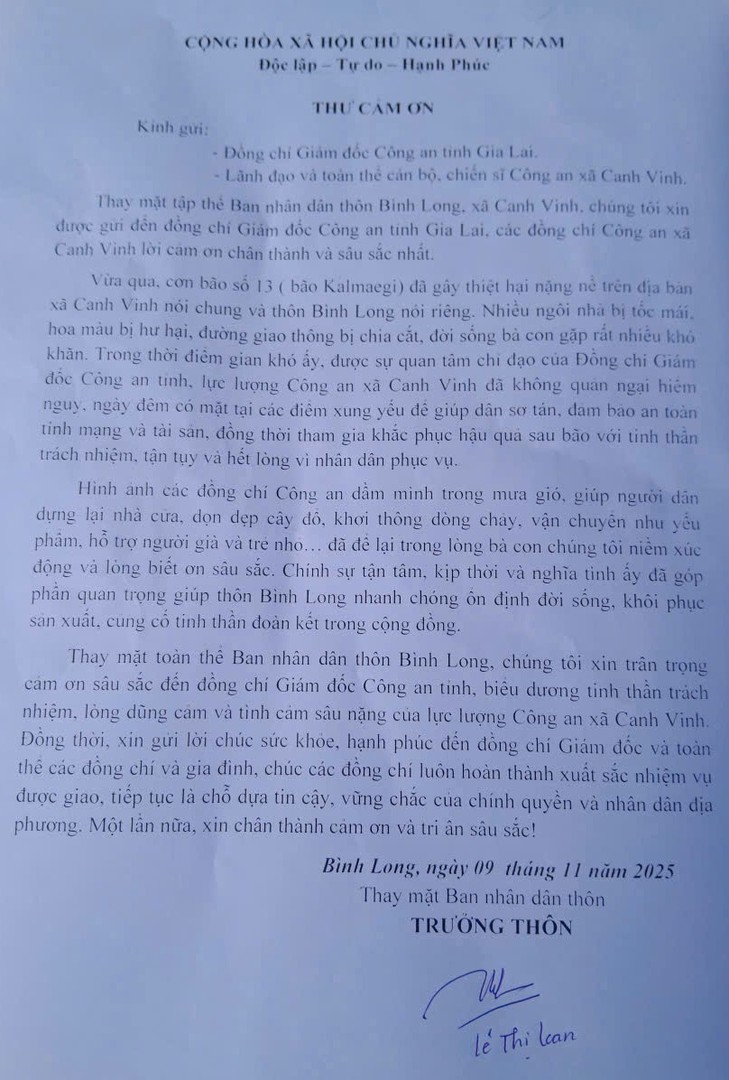 CỘNG HÒA XÃ HỘI CHỦ NGHĨA VIỆT NAM
Độc lập – Tự do – Hạnh Phúc
THƯ CẢM ƠN
Kính gửi:
- Đồng chí Giám đốc Công an tỉnh Gia Lai.
- Lãnh đạo và toàn thể cán bộ, chiến sĩ Công an xã Canh Vinh.
Thay mặt tập thể Ban nhân dân thôn Bình Long, xã Canh Vinh, chúng tôi xin
được gửi đến đồng chí Giám đốc Công an tỉnh Gia Lai, các đồng chí Công an xã
Canh Vinh lời cảm ơn chân thành và sâu sắc nhất.
Vừa qua, cơn bão số 13 ( bão Kalmaegi) đã gây thiệt hại nặng nề trên địa bàn
xã Canh Vinh nói chung và thôn Bình Long nói riêng. Nhiều ngôi nhà bị tốc mái,
hoa màu bị hư hại, đường giao thông bị chia cắt, đời sống bà con gặp rất nhiều khó
khăn. Trong thời điểm gian khó ấy, được sự quan tâm chỉ đạo của Đồng chí Giám
đốc Công an tỉnh, lực lượng Công an xã Canh Vinh đã không quản ngại hiểm
nguy, ngày đêm có mặt tại các điểm xung yếu để giúp dân sơ tán, đảm bảo an toàn
tính mạng và tài sản, đồng thời tham gia khắc phục hậu quả sau bão với tinh thần
trách nhiệm, tận tụy và hết lòng vì nhân dân phục vụ.
Hình ảnh các đồng chí Công an dầm mình trong mưa gió, giúp người dân
dựng lại nhà cửa, dọn dẹp cây đổ, khơi thông dòng chảy, vận chuyển nhu yếu
phẩm, hỗ trợ người già và trẻ nhỏ... đã để lại trong lòng bà con chúng tôi niềm xúc
động và lòng biết ơn sâu sắc. Chính sự tận tâm, kịp thời và nghĩa tình ấy đã góp
phần quan trọng giúp thôn Bình Long nhanh chóng ổn định đời sống, khôi phục
sản xuất, củng cố tinh thần đoàn kết trong cộng đồng.
Thay mặt toàn thể Ban nhân dân thôn Bình Long, chúng tôi xin trân trọng
cảm ơn sâu sắc đến đồng chí Giám đốc Công an tỉnh, biểu dương tinh thần trách
nhiệm, lòng dũng cảm và tình cảm sâu nặng của lực lượng Công an xã Canh Vinh.
Đồng thời, xin gửi lời chúc sức khỏe, hạnh phúc đến đồng chí Giám đốc và toàn
thể các đồng chí và gia đình, chúc các đồng chí luôn hoàn thành xuất sắc nhiệm vụ
được giao, tiếp tục là chỗ dựa tin cậy, vững chắc của chính quyền và nhân dân địa
phương. Một lần nữa, xin chân thành cảm ơn và tri ân sâu sắc!
Bình Long, ngày 09 tháng 11 năm 2025
Thay mặt Ban nhân dân thôn
TRƯỞNG THÔN
Lê Thị Loan